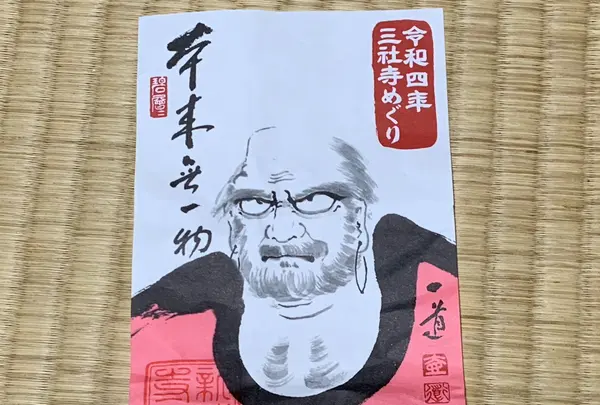 令和四年
三社寺めぐり
本来無一物
一道